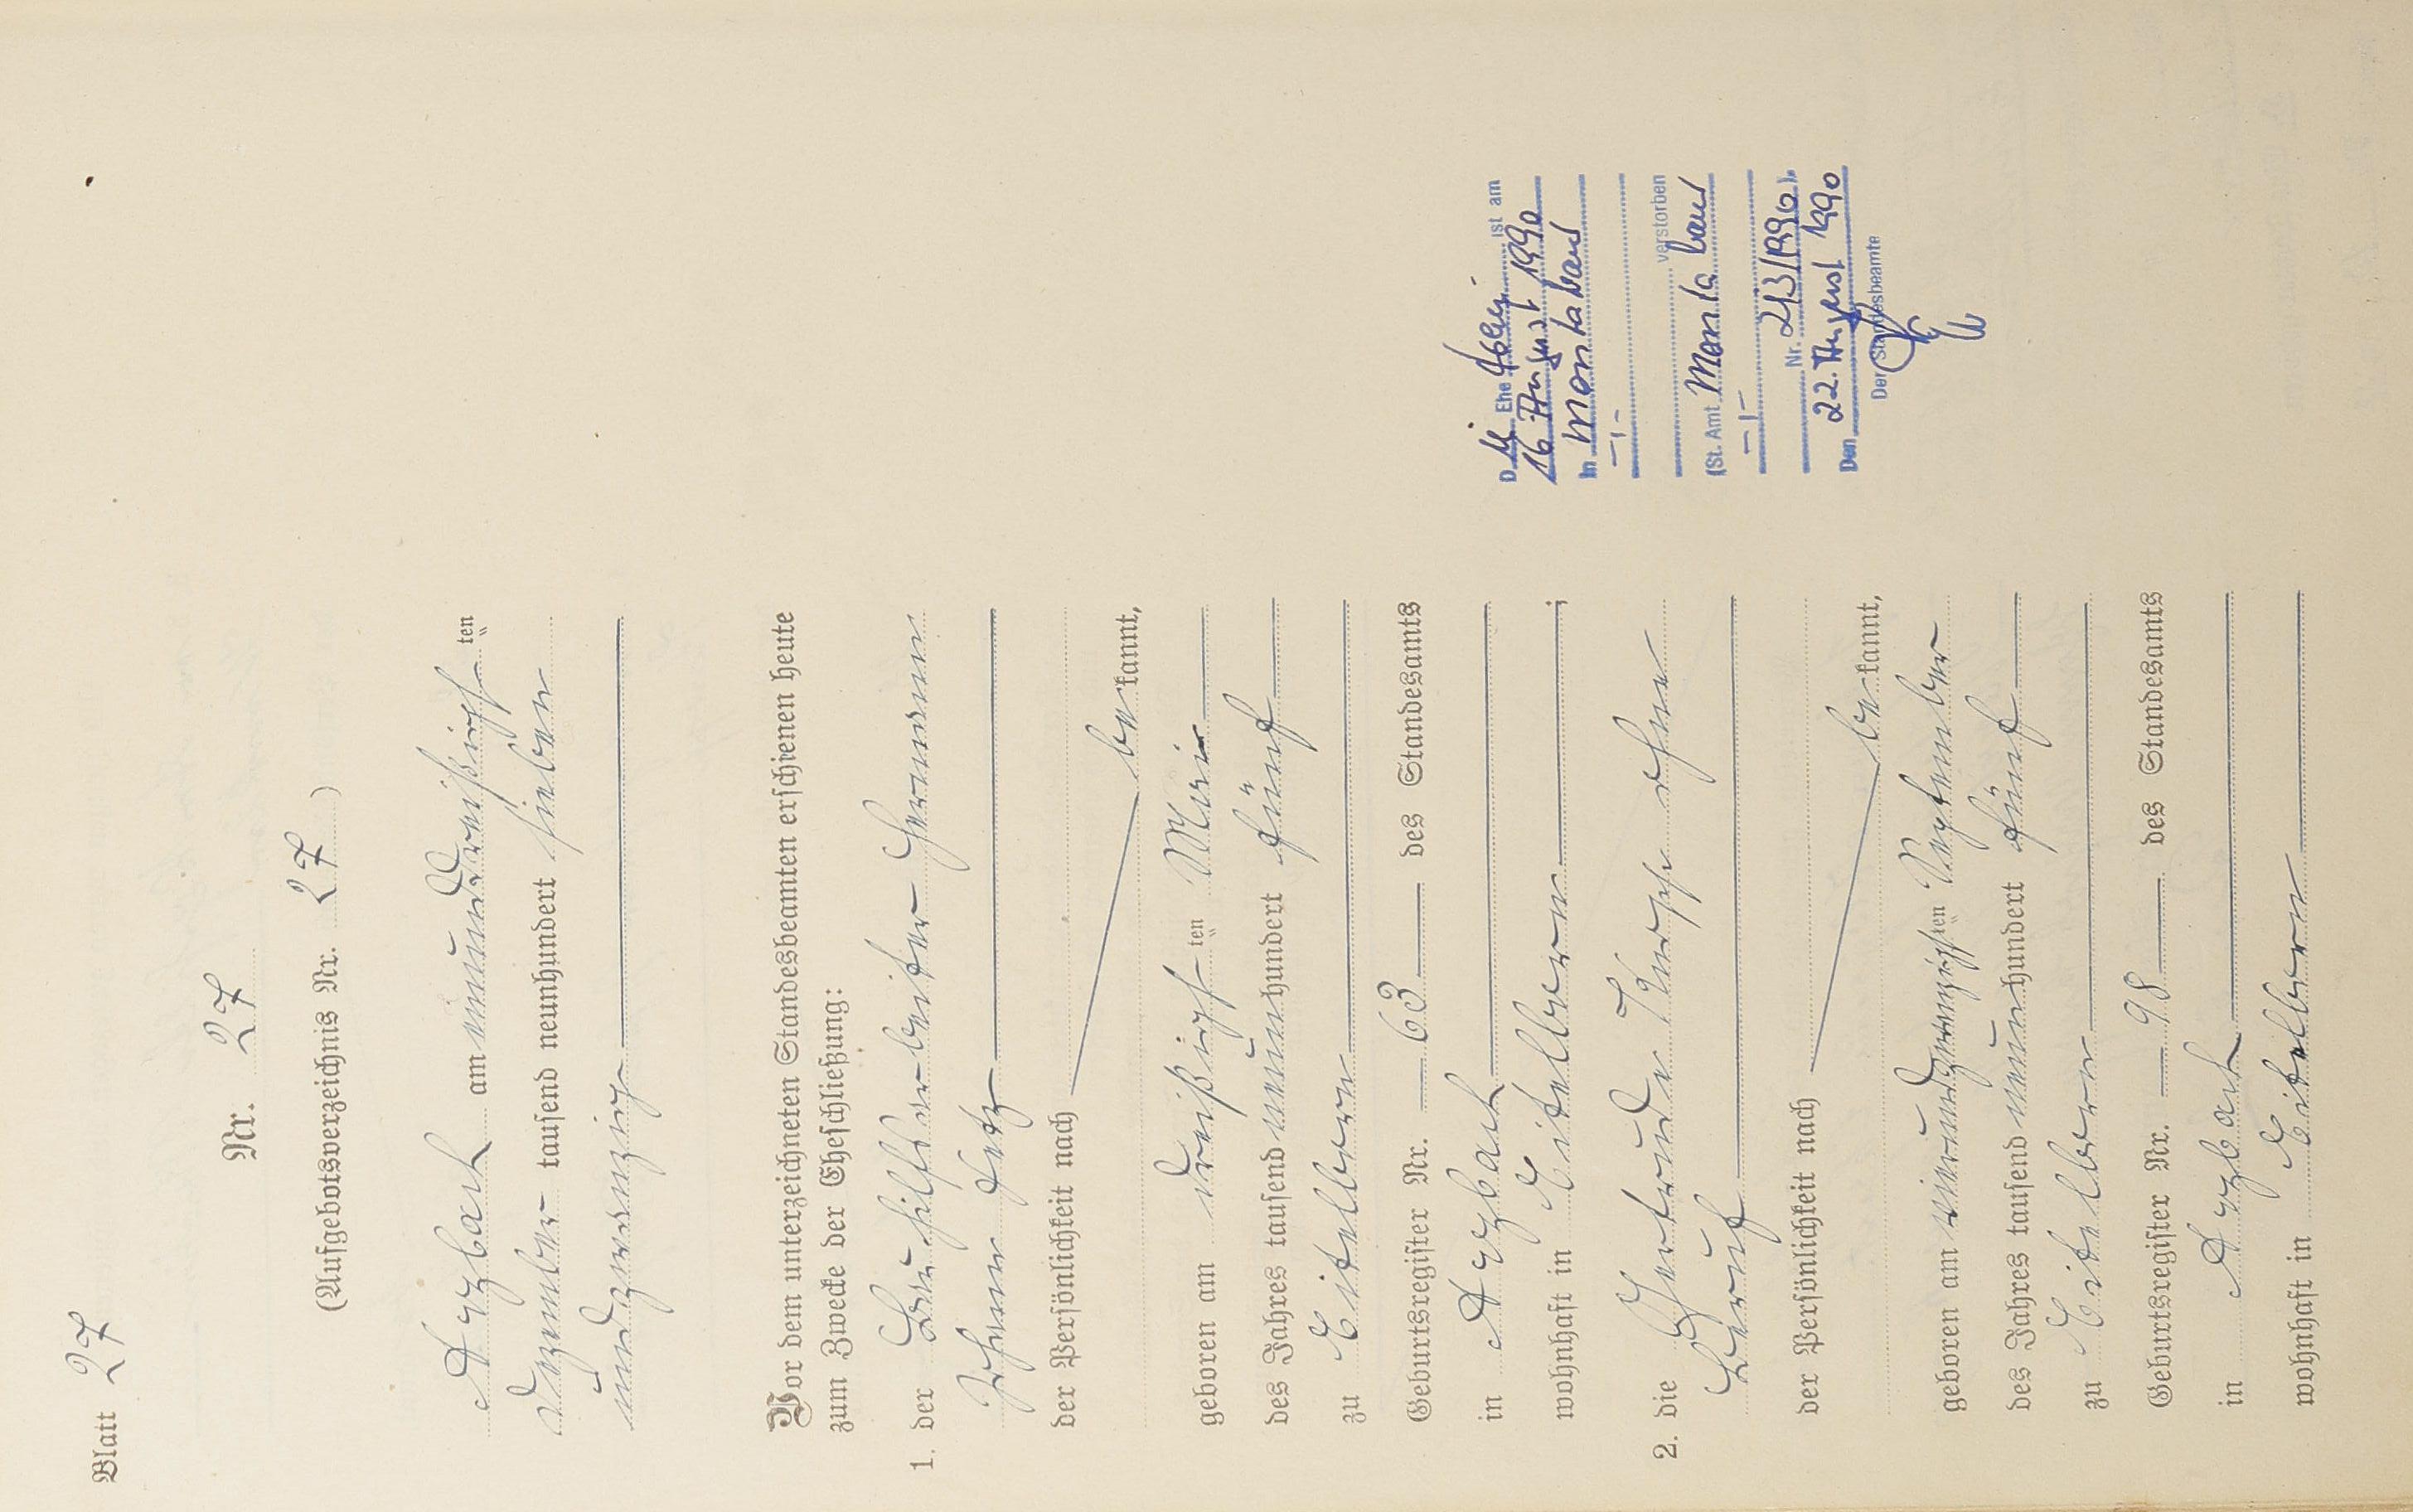 Blatt 27
Nr. 27
(Aufgebotsverzeichnis Nr. 27)
Arzbach am neunundreißigsten
Dezember tausend neunhundert sieben
undzwanzig
Vor dem unterzeichneten Standesbeamten erschienen heute
zum Zwecke der Eheschließung:
1. der Bauhilfsarbeiter Hermann
Johann Fetz
der Persönlichkeit nach
bekannt,
geboren am dreißigsten Mai
des Jahres tausend neunhundert fünf
zu Eitelborn
Geburtsregister Nr. 63 des Standesamts
in Arzbach
wohnhaft in Eitelborn;
2. die Gertrude ohne
Beruf
der Persönlichkeit nach
bekannt,
geboren am vierundzwanzigsten September
des Jahres tausend neunhundert fünf
zu Eitelborn
Geburtsregister Nr. 98 des Standesamts
in Arzbach
wohnhaft in Eitelborn
Die Ehefrau ist am
16 August 1990
in Montabaur
-,-
verstorben
(St. Amt Montabaur
-,-
Nr. 213/1990).
Den 22. August 1990
Der Standesbeamte